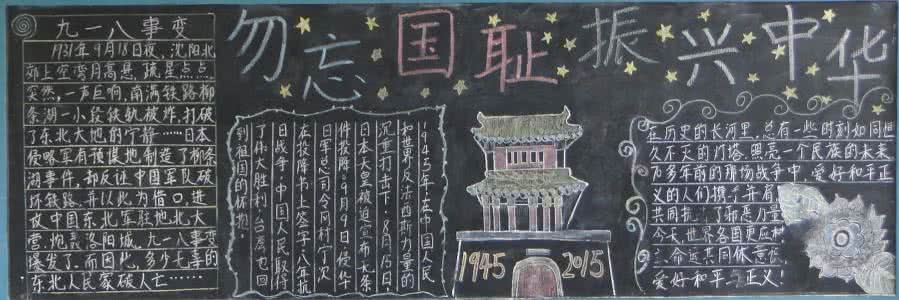 九一八事变
1931年9月18日夜,沈阳北
郊上空弯月高悬,疏星点点
突然,一声巨响,南满铁路柳
条湖一小段铁轨被炸,打破
了东北大地的宁静……日本
侵略军有预谋地制造了柳条
湖事件,却反诬中国军队破
坏铁路,并以此为借口,进
攻中国东北军驻地北大
营,炮轰沈阳城。九一八事变
爆发了。而因此,多少无辜的
东北人民家破人亡……
勿忘国耻振兴中华
1945年,在中国人民
和世界反法西斯力量的
沉重打击下,8月15日,
日本天皇被迫宣布无条
件投降。9月9日,侵华
日军总司令冈村宁次
在投降书上签字,八年抗
日战争,中国人民取得
了伟大胜利,台湾也回
到祖国的怀抱。
1945 2015
在历史的长河里,总有一些时刻如同恒
久不灭的灯塔,照亮一个民族的未来
70多年前的那场战争中,爱好和平正
义的人们携手并肩
共同抗
今天,世界各国更应树
立命运共同体意识
爱好和平 正义!